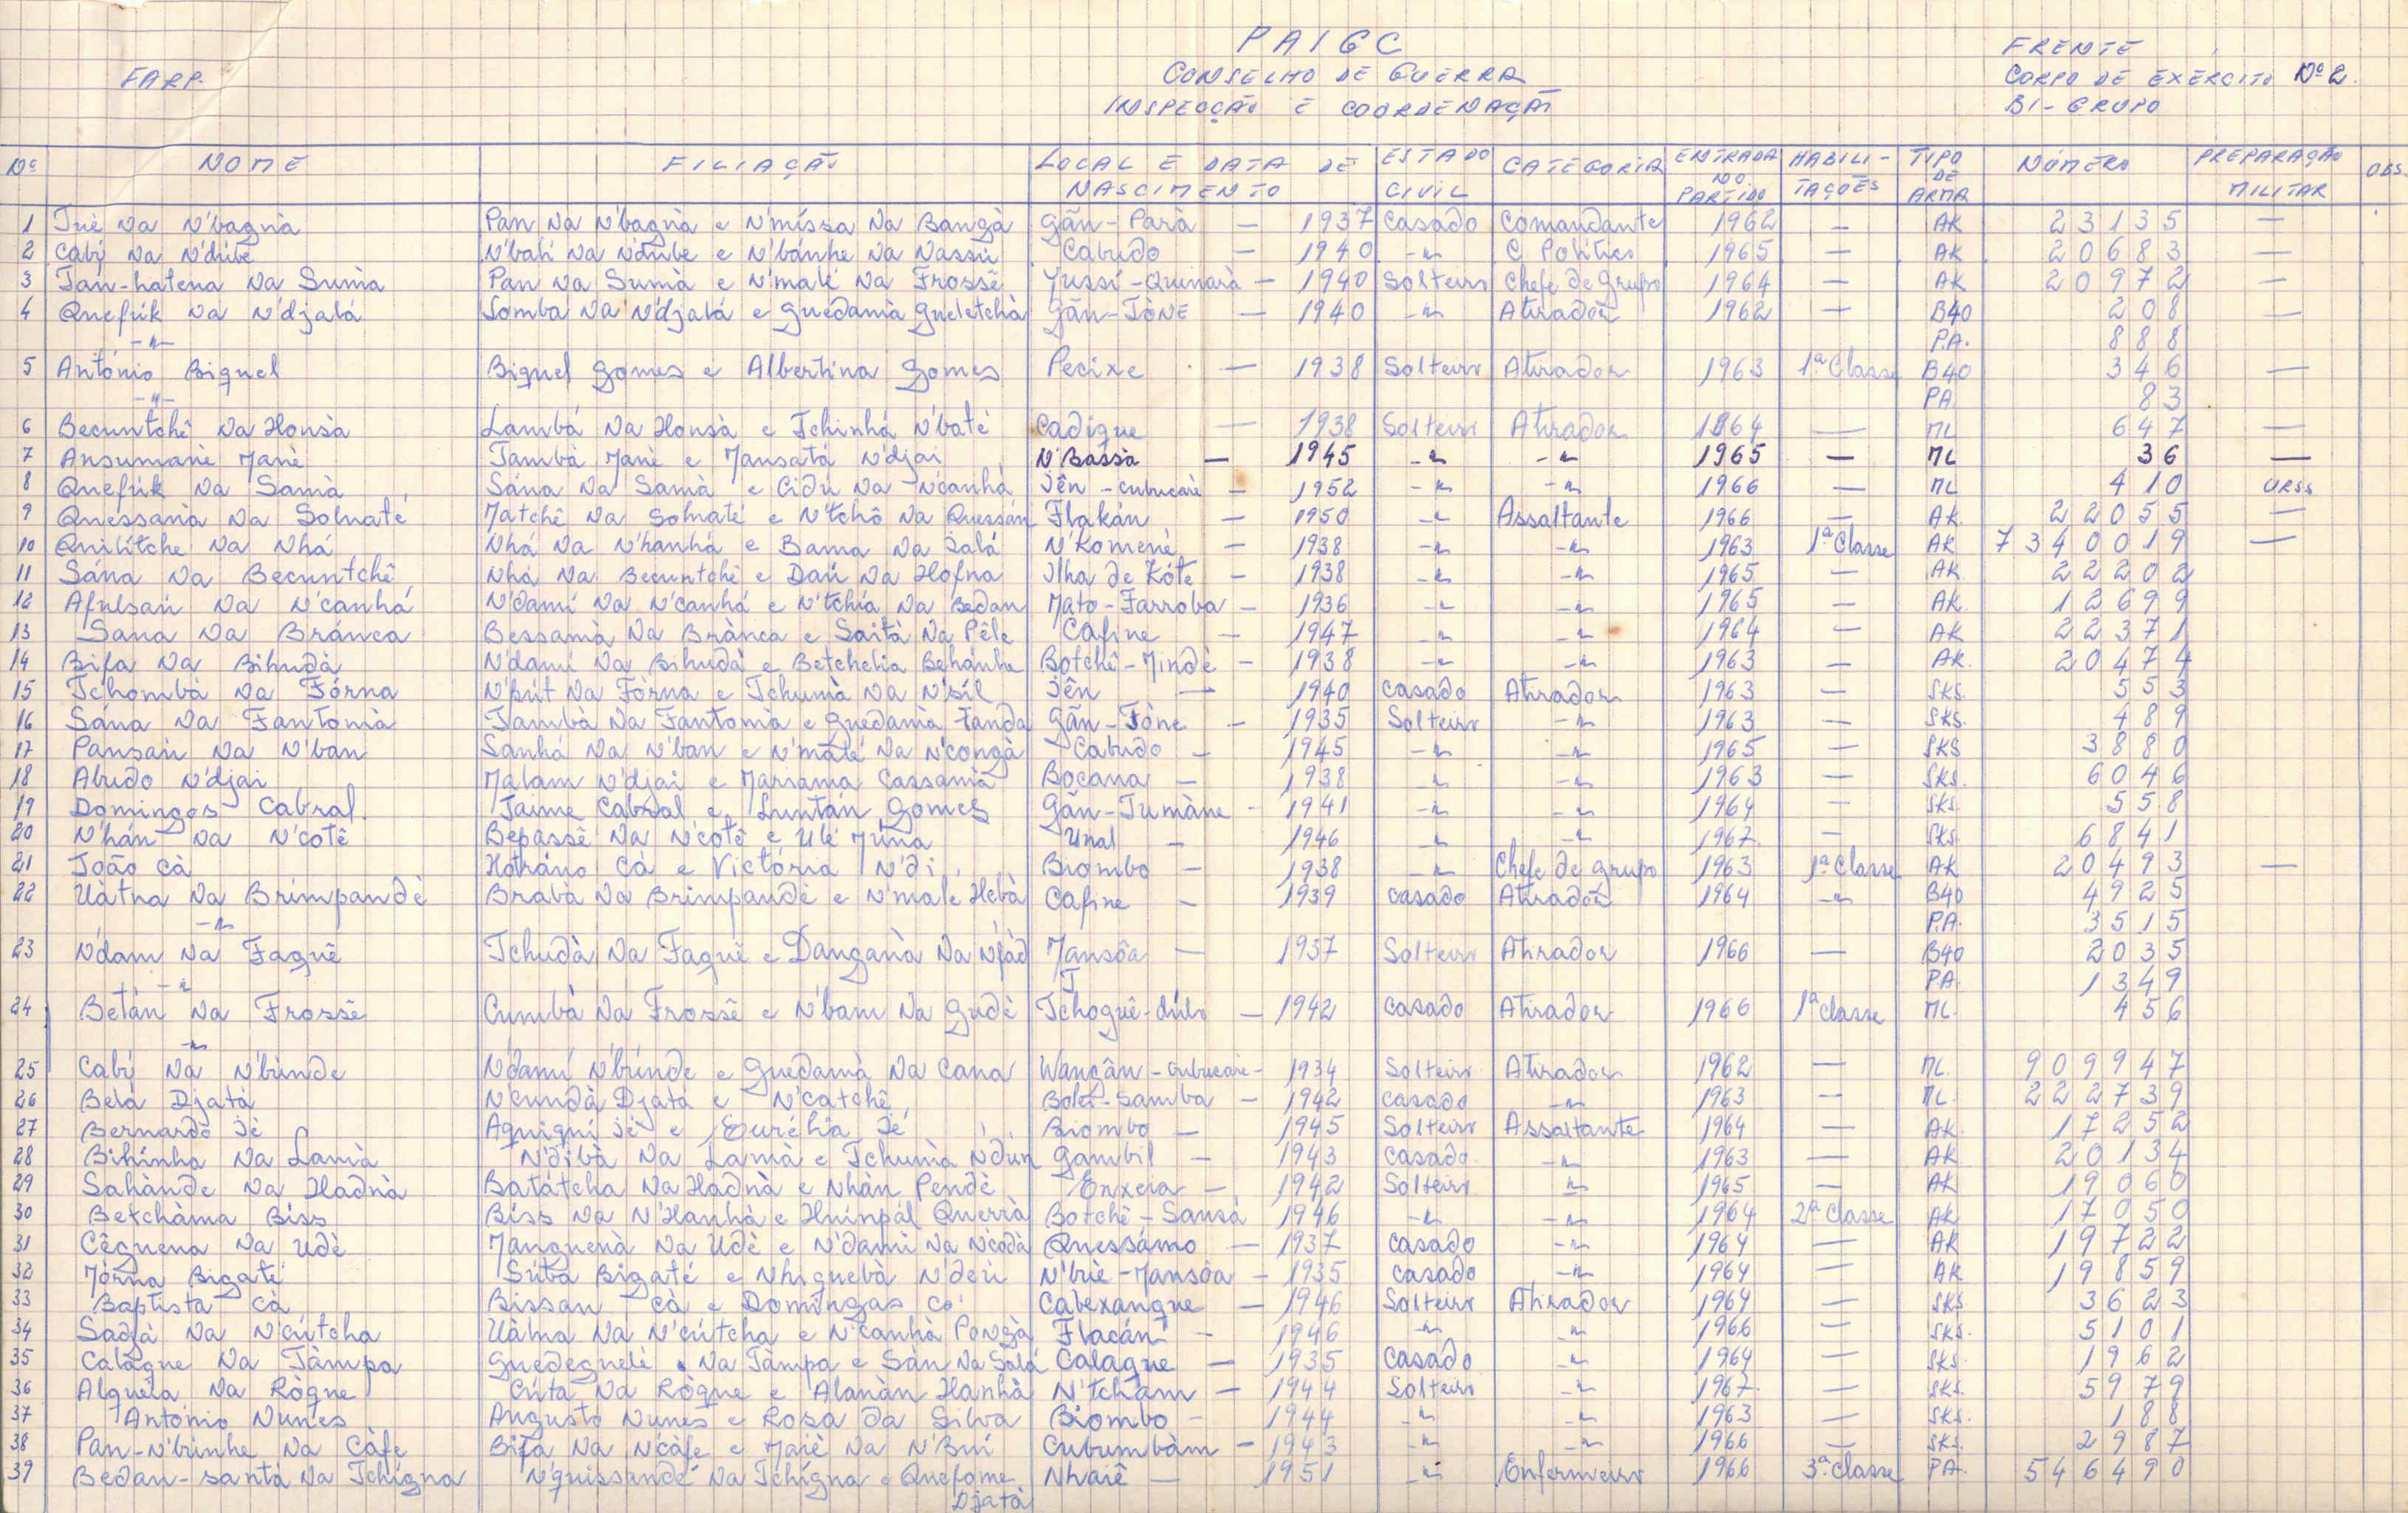 FARP.
PAIGC
CONSELHO DE GUERRA
INSPECÇÃO E COORDENAÇÃO
FRENTE
CORPO DE EXÉRCITO Nº 2.
BI-GRUPO
Nº NOME FILIAÇÃO LOCAL E DATA DE NASCIMENTO ESTADO CIVIL CATEGORIA ENTRADA NO PARTIDO HABILITAÇÕES TIPO DE ARMA NÚMERO PREPARAÇÃO MILITAR OBS.
1 Tué Na N'bagnà Pan Na N'bagnà e N'míssa Na Bangà Gãn-Parà — 1937 Casado Comandante 1962 — AK 23135 —
2 Cabí Na N'dúbe N'batí Na N'dúbe e N'bánhe Na Nassú Cabudo — 1940 -"- C. Político 1965 — AK 20683 —
3 Tan-hatena Na Sumà Pan Na Sumà e N'malé Na Frossê Jussí-Quinarà — 1940 Solteiro Chefe de Grupo 1964 — AK 20972 —
4 Quefúk Na N'djalá Somba Na N'djalá e Guedanià Gueletchà Gãn-TòNE — 1940 -"- Atirador 1962 — B40 208 —
-"- P.A. 888
5 António Biquel Biquel Gomes e Albertina Gomes Pecixe — 1938 Solteiro Atirador 1963 1ª Classe B40 346 —
-"- PA 83
6 Becuntchê Na Honsà Lambá Na Honsà e Tchinhá N'baté Cadique — 1938 Solteiro Atirador 1964 — ML 647 —
7 Ansumané Mané Tambà Mané e Mansatá N'djai N'Bassà — 1945 -"- -"- 1965 — ML 36 —
8 Quefúk Na Samà Sána Na Samà e Cidú Na N'canhá Jên-Cubucaré — 1952 -"- -"- 1966 — ML 410 URSS
9 Quessanà Na Solnaté Matchê Na Solnaté e N'tchô Na Quessán Flakán — 1950 -"- Assaltante 1966 — AK. 22055 —
10 Quilítche Na Nhá Nhá Na N'hanhá e Bama Na Salá N'Komené — 1938 -"- -"- 1963 1ª Classe AK 7340019 —
11 Sána Na Becuntchê Nhá Na Becuntchê e Daú Na Hofna Ilha de Kóte — 1938 -"- -"- 1965 — AK. 22202
12 Afulsaú Na N'canhá N'damí Na N'canhá e N'tchía Na Bedan Mato-Farroba — 1936 -"- -"- 1965 — AK. 12699
13 Sana Na Bránca Bessamà Na Brànca e Saità Na Pêlé Cafine — 1947 -"- -"- 1964 — AK 22371
14 Bifa Na Bihudà N'damí Na Bihudà e Betchelia Behánhe Botchê-Mindé — 1938 -"- -"- 1963 — AK. 20474
15 Tchombà Na Fórna N'pút Na Fòrna e Tchumà Na N'síl Jên — 1940 Casado Atirador 1963 — SKS. 553
16 Sána Na Fantomà Tambà Na Fantomà e Guedanià Tanda Gãn-Tòne — 1935 Solteiro -"- 1963 — SKS. 489
17 Pansaú Na N'ban Sanhá Na N'ban e N'maté Na N'congà Cabudo — 1945 -"- -"- 1965 — SKS 3880
18 Abudo N'djai Malam N'djai e Mariama Cassamà Bocana — 1938 -"- -"- 1963 — SKS. 6046
19 Domingos Cabral. Jaime Cabral e Luntán Gomes Gãn-Tumàne - 1941 -"- -"- 1964 — SKS. 558
20 N'hán Na N'cotê Bepassê Na N'cotê e Ulé Múna Unal — 1946 -"- -"- 1967. — SKS. 6841
21 João Cà Hotráno Cà e Victória N'di Biombo — 1938 -"- Chefe de Grupo 1963 1ª Classe AK 20493 —
22 Uàtna Na Brimpandé Brabà Na Brimpandé e N'male Hebà Cafine — 1939 Casado Atirador 1964 -"- B40 4925
-"- P.A. 3515
23 N'dam Na Faquê Tchudà Na Faquê e Danganà Na N'fàd Mansôa — 1937 Solteiro Atirador 1966 — B40 2035
-"- PA. 1349
24 Betán Na Frossê Cumbà Na Frossê e N'bam Na Gudê Tchoguê-dúlo — 1942 Casado Atirador 1966 1ª Classe ML. 456
-"-
25 Cabí Na N'búnde N'damí N'búnde e Guedamà Na Cana Wangân-Cubucaré — 1934 Solteiro Atirador 1962 — ML. 909947
26 Belà Djatà N'cundà Djatá e N'catchê Bolei-Samba — 1942 Casado -"- 1963 — ML. 222739
27 Bernardo Jé Aquiquí Jé e Eurélia Jé Biombo — 1945 Solteiro Assaltante 1964 — AK. 17252
28 Bihínha Na Lamà N'dibà Na Lamà e Tchumà N'dún Gambil — 1943 Casado -"- 1963 — AK 20134
29 Sahànde Na Hadnà Batátcha Na Hadnà e Nhàn Pendé Enxeia — 1942 Solteiro -"- 1965 — AK 19060
30 Betchàma Biss Biss Na N'Hanhà e Hninpál Querrà Botchê-Sansá 1946 -"- -"- 1964 2ª Classe AK 17050
31 Cêguena Na Udè Manguenà Na Udè e N'dami Na N'codà Quessámo — 1937 Casado -"- 1964 — AK 19722
32 Mórna Bigaté Súba Bigaté e Nhiguebà N'deú N'brié-Mansôa — 1935 Casado -"- 1964 — AK 19859
33 Baptista Cà Bissan Cà e Domingas Có Cabexangue — 1946 Solteiro Atirador 1964 — SKS 3623
34 Sadjà Na N'cútcha Uàlna Na N'cútcha e N'canhà Ponzà Flacán — 1946 -"- -"- 1966 — SKS. 5101
35 Calaque Na Tàmpa Guedeguelé Na Tàmpa e Sàn Na Salá Calaque — 1935 Casado -"- 1964 — SKS. 1962
36 Alquéla Na Ròque Cúta Na Ròque e Alanàn Hanhà N'tchàm — 1944 Solteiro -"- 1967. — SKS. 5979
37 António Nunes Augusto Nunes e Rosa da Silva Biombo — 1944 -"- -"- 1963 — SKS. 188
38 Pan-N'brinhe Na Càfe Bifá Na N'càfe e Maié Na N'Buí Cubumbàm — 1943 -"- -"- 1966 — SKS. 2987
39 Bedan-santà Na Tchígna N'quissandé Na Tchígna e Quefome Djatà Nhaiê — 1951 -"- Enfermeiro 1966 3ª Classe PA. 546490